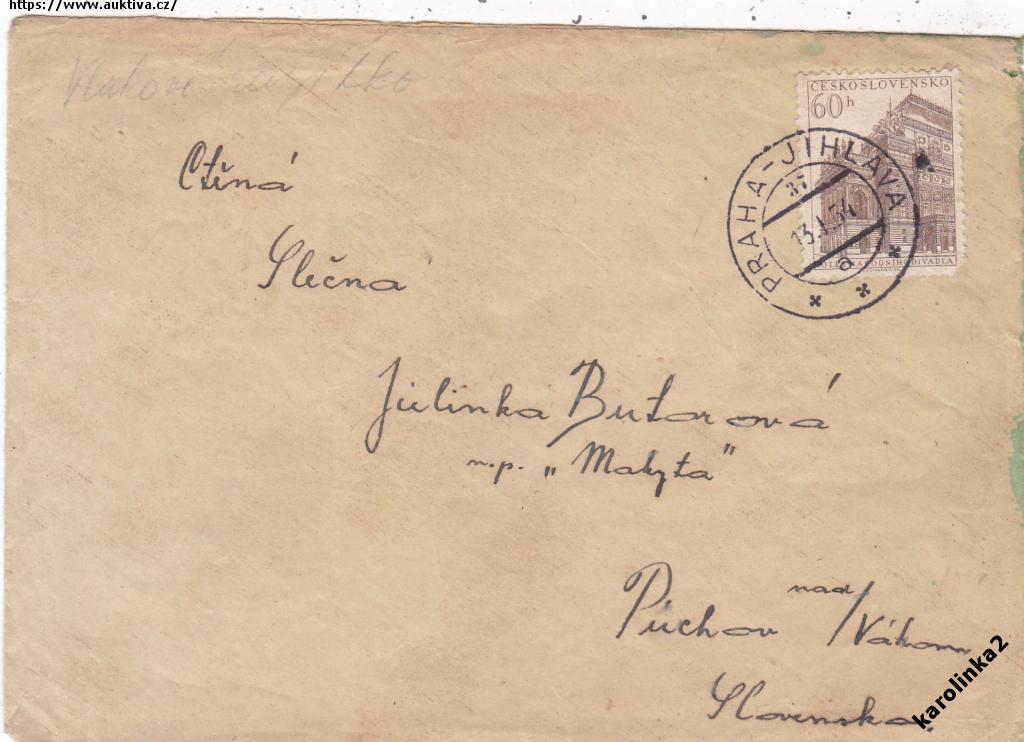 https://www.auktiva.cz/
Vlakové
ČESKOSLOVENSKO
60 h
PRAHA-JIHLAVA
37
13.
a
NÁRODNÍHO DIVADLA
Ctěná
Slečna
Julinka Butorová
n.p. „Makyta"
Púchov nad/Váhom
Slovensko
karolinka2